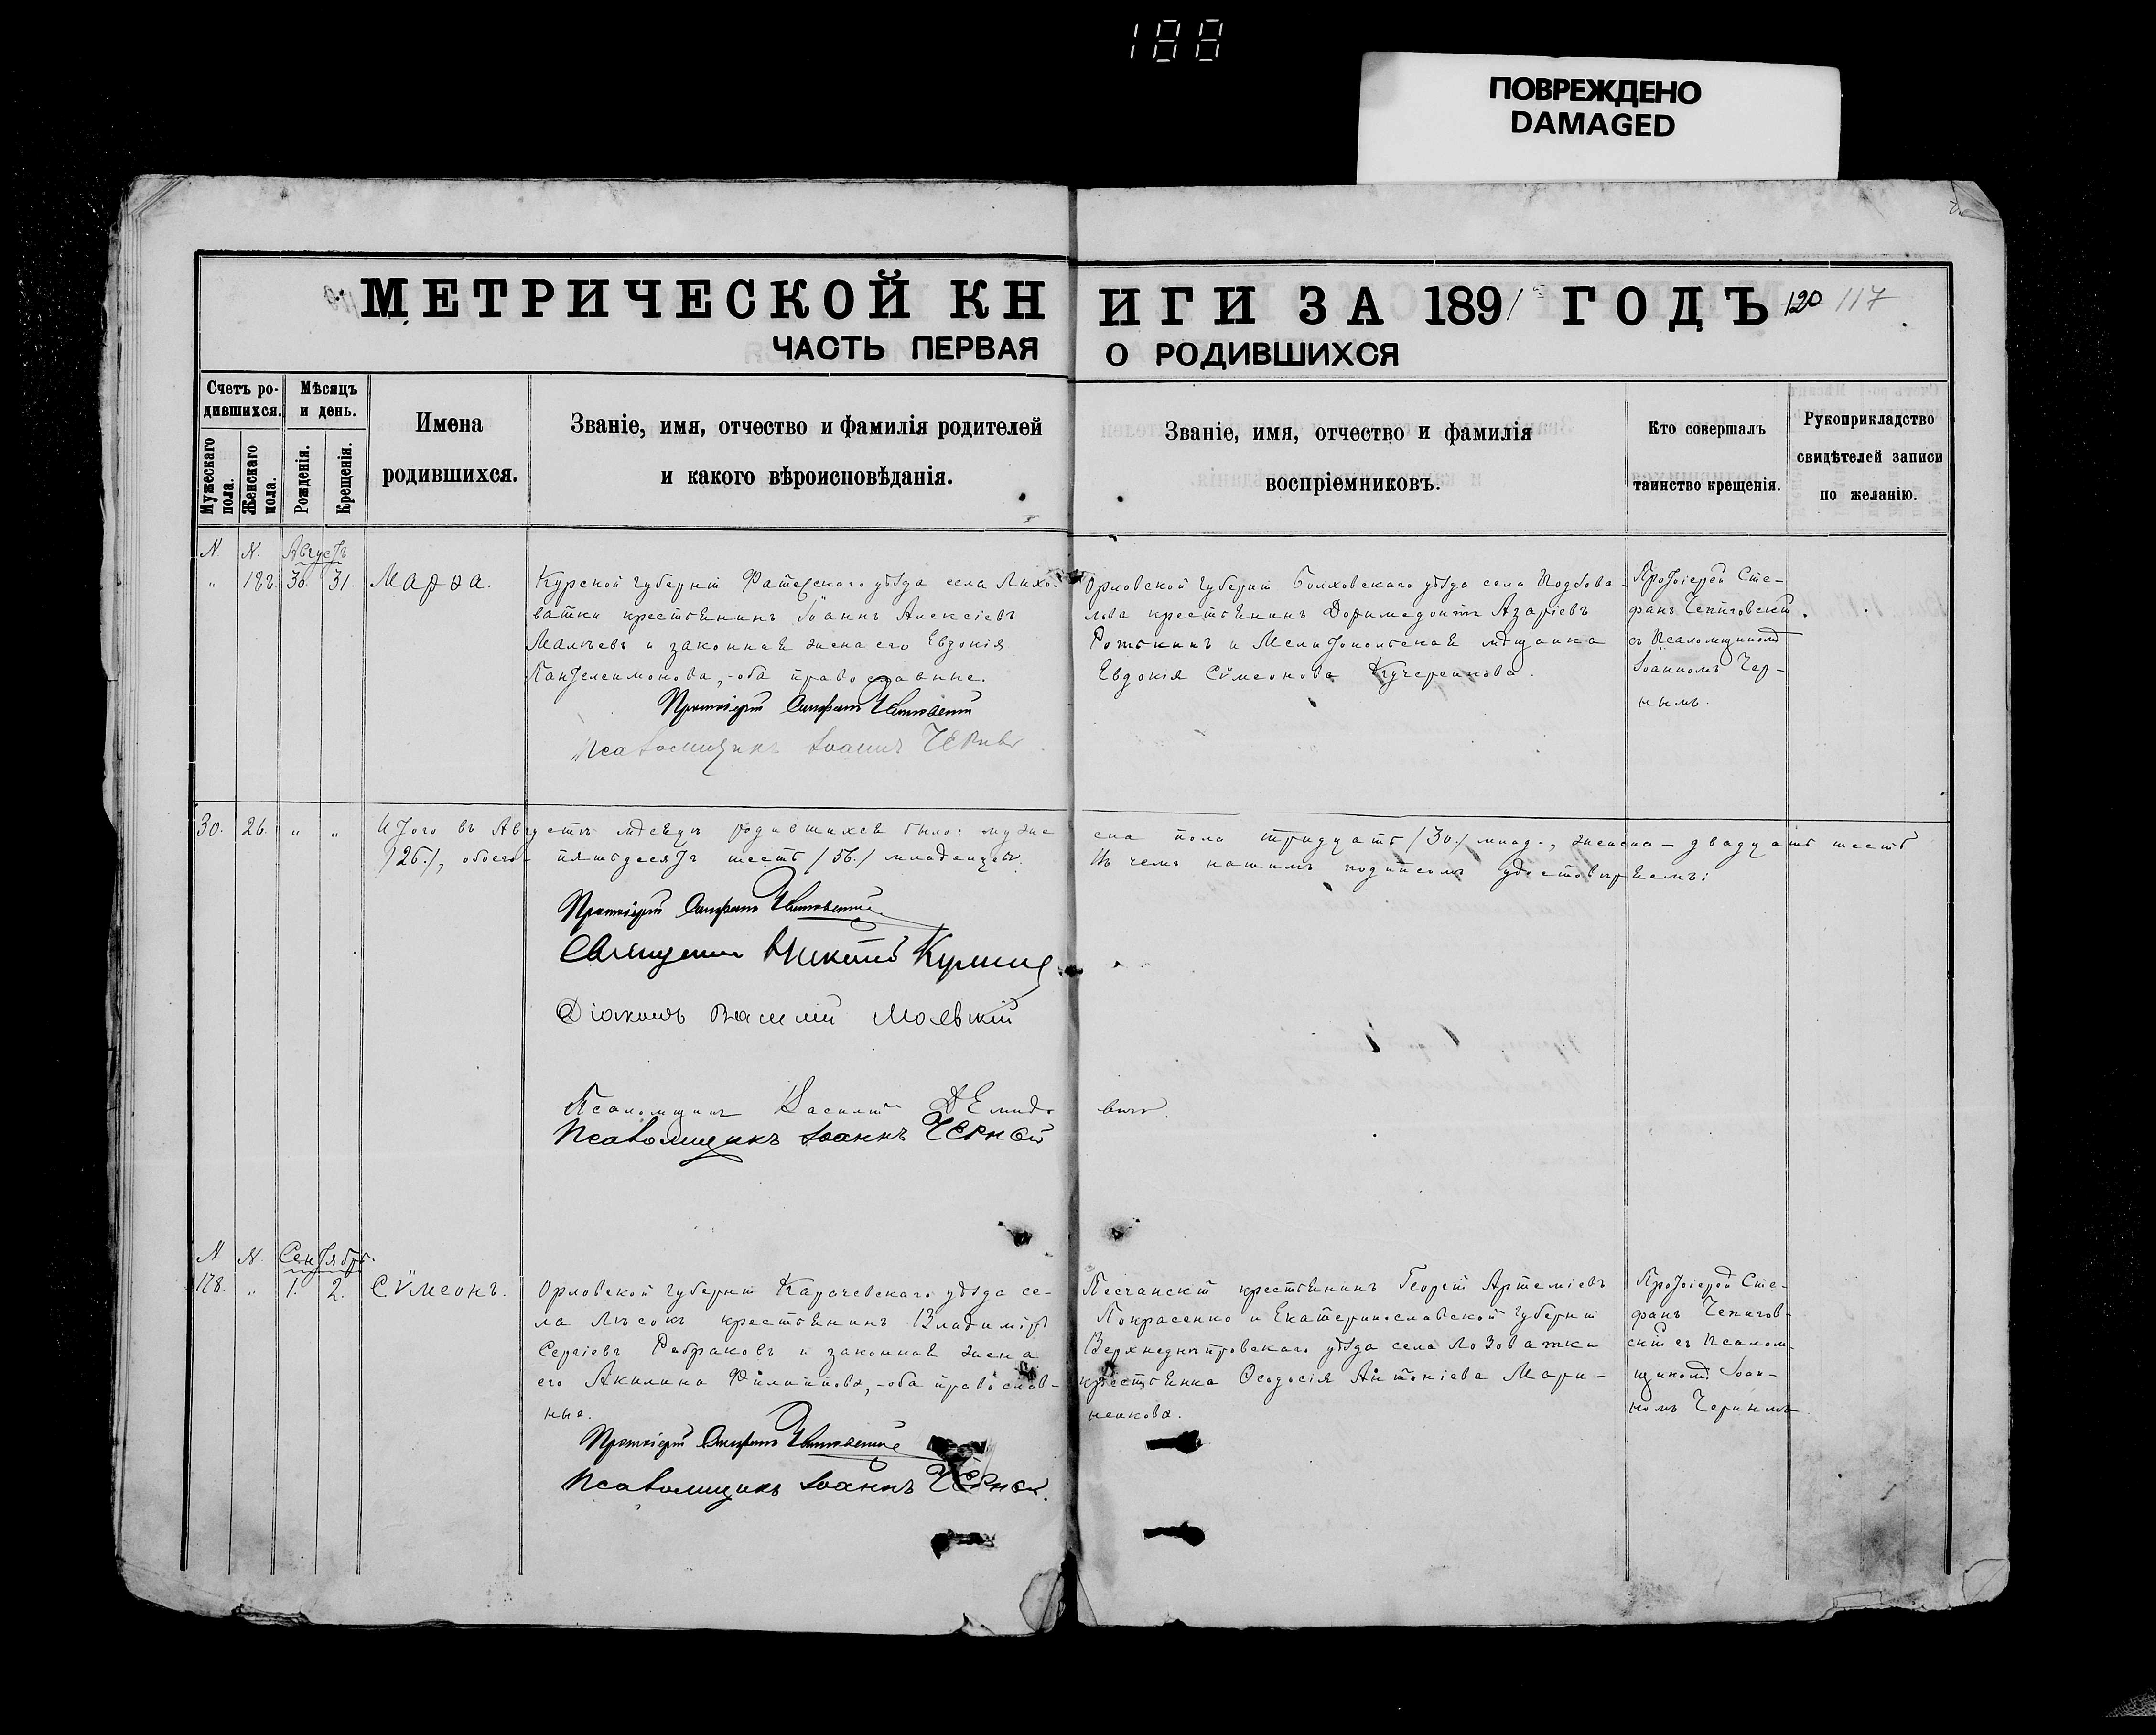 188
ПОВРЕЖДЕНО
DAMAGED
МЕТРИЧЕСКОЙ КНИГИ ЗА 1891 ГОДЪ 120 117
ЧАСТЬ ПЕРВАЯ О РОДИВШИХСЯ
Счетъ ро-
дившихся.
Мужескаго пола.
Женскаго пола.
Мѣсяцъ
и день.
Рожденія.
Крещенія.
Имена
родившихся.
Званіе, имя, отчество и фамилія родителей
и какого вѣроисповѣданія.
Званіе, имя, отчество и фамилія
воспріемниковъ.
Кто совершалъ
таинство крещенія.
Рукоприкладство
свидѣтелей записи
по желанію.
N. N. Августъ
" 122. 30. 31. Марѳа.
Курской губерніи Фатежскаго уѣзда села Лихо-
ватки крестьянинъ Іоаннъ Алексіевъ
Мальевъ и законная жена его Евдокія
Пантелеимонова, - оба православные.
Протоіерей Стефанъ
Псаломщикъ Іоаннъ Черный
Орловской губерніи Болховскаго уѣзда села
крестьянинъ Доримедонтъ Азаріевъ
и Мелитопольская мѣщанка
Евдокія Сѵмеонова Кучеренкова.
Протоіерей Сте-
фанъ
съ Псаломщикомъ
Іоанномъ Чер-
нымъ.
30. 26. " " Итого въ Августѣ мѣсяцѣ родившихся было: мужеска пола тридцать /30./ млад., женска - двадцать шесть
/26./, обоего пятьдесятъ шесть /56./ младенцевъ. Въ чемъ нашимъ подписомъ удостовѣряемъ:
Протоіерей Стефанъ
Священникъ Никита
Діаконъ Василій
Псаломщикъ Василій
Псаломщикъ Іоаннъ Черный
N. N. Сентябрь.
128. " 1. 2. Сѵмеонъ.
Орловской губерніи Карачевскаго уѣзда се-
ла Лѣсокъ крестьянинъ Владиміръ
Сергіевъ и законная жена
его Акилина Филиппова, - оба православ-
ные.
Протоіерей Стефанъ
Псаломщикъ Іоаннъ Черный
Песчанскій крестьянинъ Георгій Артеміевъ
Покрасенко и Екатеринославской губерніи
Верхнеднѣпровскаго уѣзда села Лозоватки
крестьянка Ѳеодосія Антоніева Мари-
ненкова.
Протоіерей Сте-
фанъ
съ Псалом-
щикомъ Іоан-
номъ Чернымъ